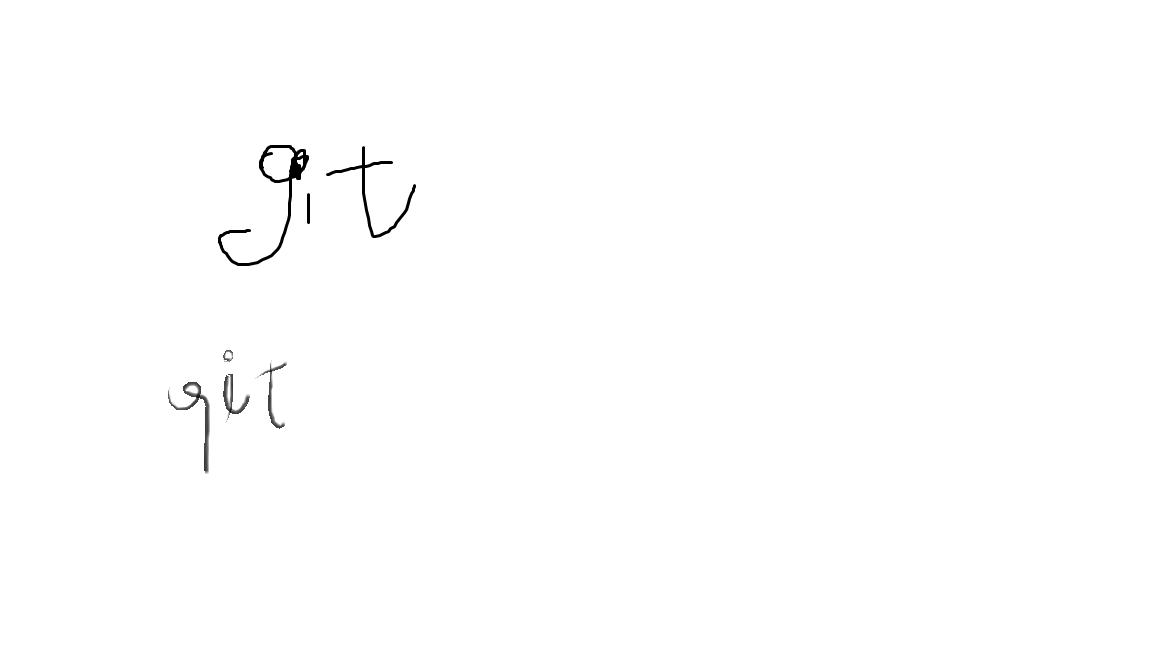 git
git